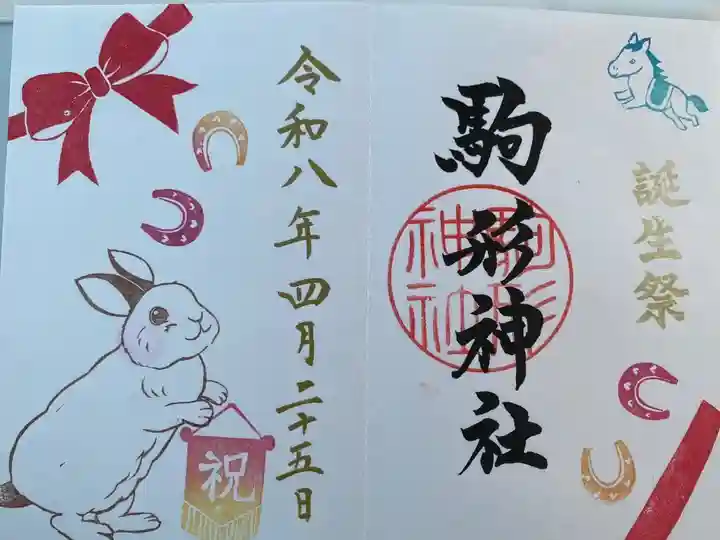 誕生祭
駒形神社
駒形
神社
令和八年四月二十五日
祝